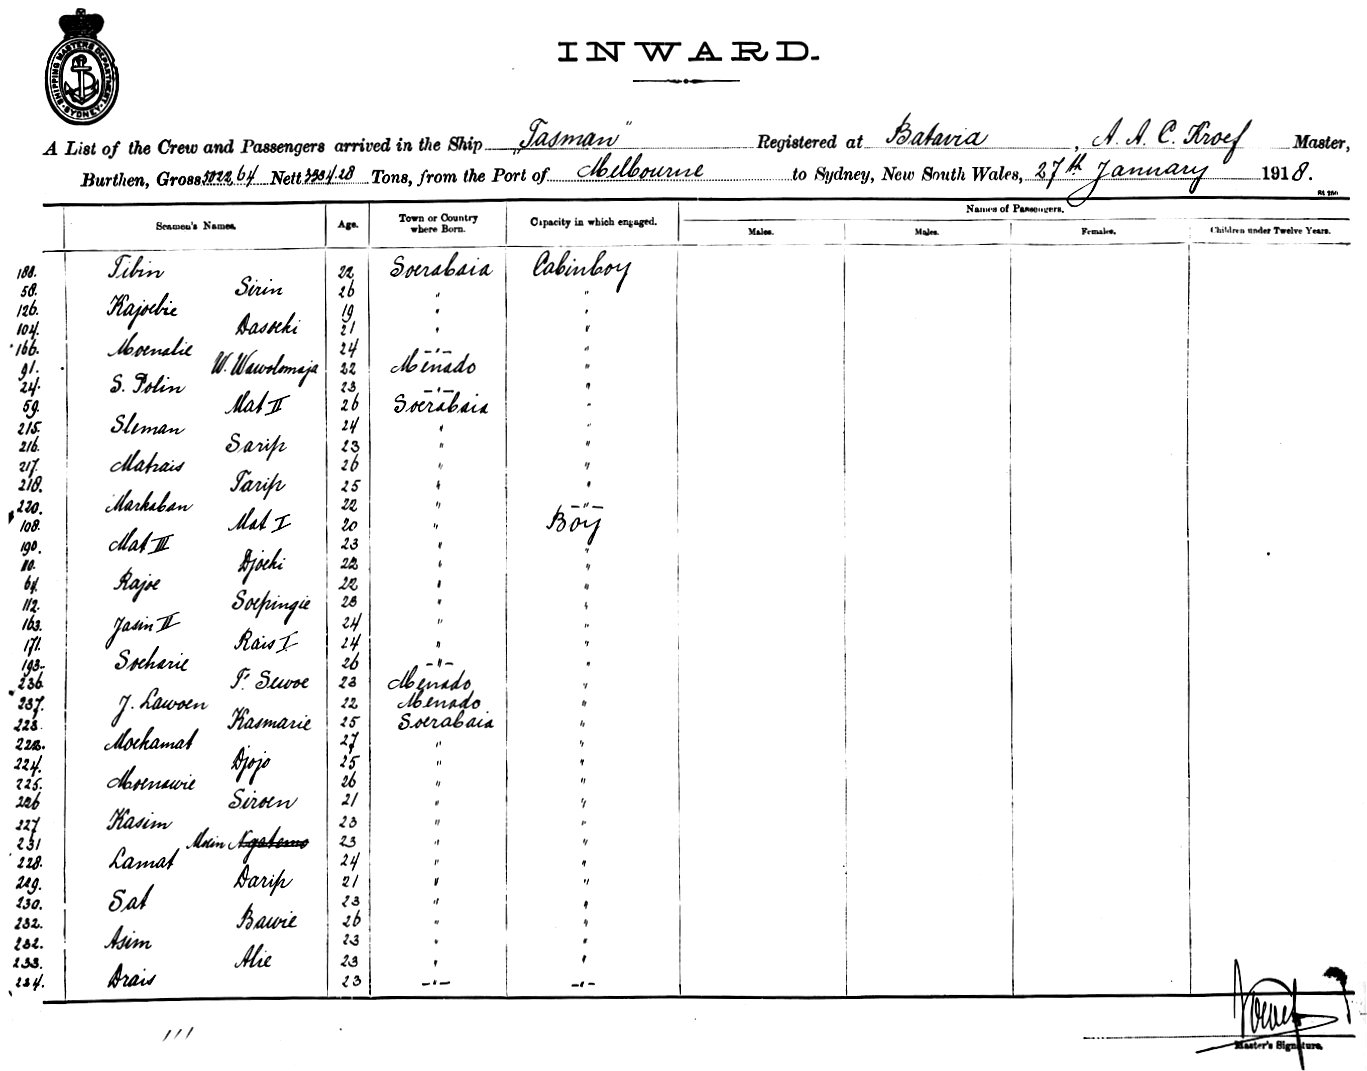 SHIPPING MASTERS DEPARTMENT
SYDNEY
INWARD.
A List of the Crew and Passengers arrived in the Ship "Tasman" Registered at Batavia, A. A. C. Kroef Master,
Burthen, Gross 5022,64 Nett 3334.28 Tons, from the Port of Melbourne to Sydney, New South Wales, 27th January 1918.
Seamen's Names. Age. Town or Country where Born. Capacity in which engaged. Names of Passengers.
Males. Males. Females. Children under Twelve Years.
188. Tibin 22 Soerabaia Cabinboy
58. Sirin 26 " "
126. Kajoebie 19 " "
104. Dasoeki 21 " "
166. Moenalie 24 -"- "
91. W. Wawolomaja 22 Menado "
24. S. Polin 23 -"- "
59. Mat II 26 Soerabaia "
215. Sleman 24 " "
216. Sarip 23 " "
217. Matrais 26 " "
218. Tarip 25 " "
220. Markaban 22 " -"-
108. Mat I 20 " Boy
190. Mat III 23 " "
110. Djoeki 22 " "
64. Rajoe 22 " "
112. Soepingie 23 " "
163. Jasin II 24 " "
171. Rais I 24 " "
193. Soeharie 26 -"- "
236. F. Sewoe 23 Menado "
237. J. Lawoen 22 Menado "
223. Kasmarie 25 Soerabaia "
222. Mochamat 27 " "
224. Djojo 25 " "
225. Moenawie 26 " "
226 Siroen 21 " "
227 Kasim 23 " "
231 Moein Ngatemo 23 " "
228. Lamat 24 " "
229. Darip 21 " "
230. Sat 23 " "
232. Bawie 26 " "
232. Asim 23 " "
233. Alie 23 " "
234. Drais 23 -"- -"-
Kroef
Master's Signature.